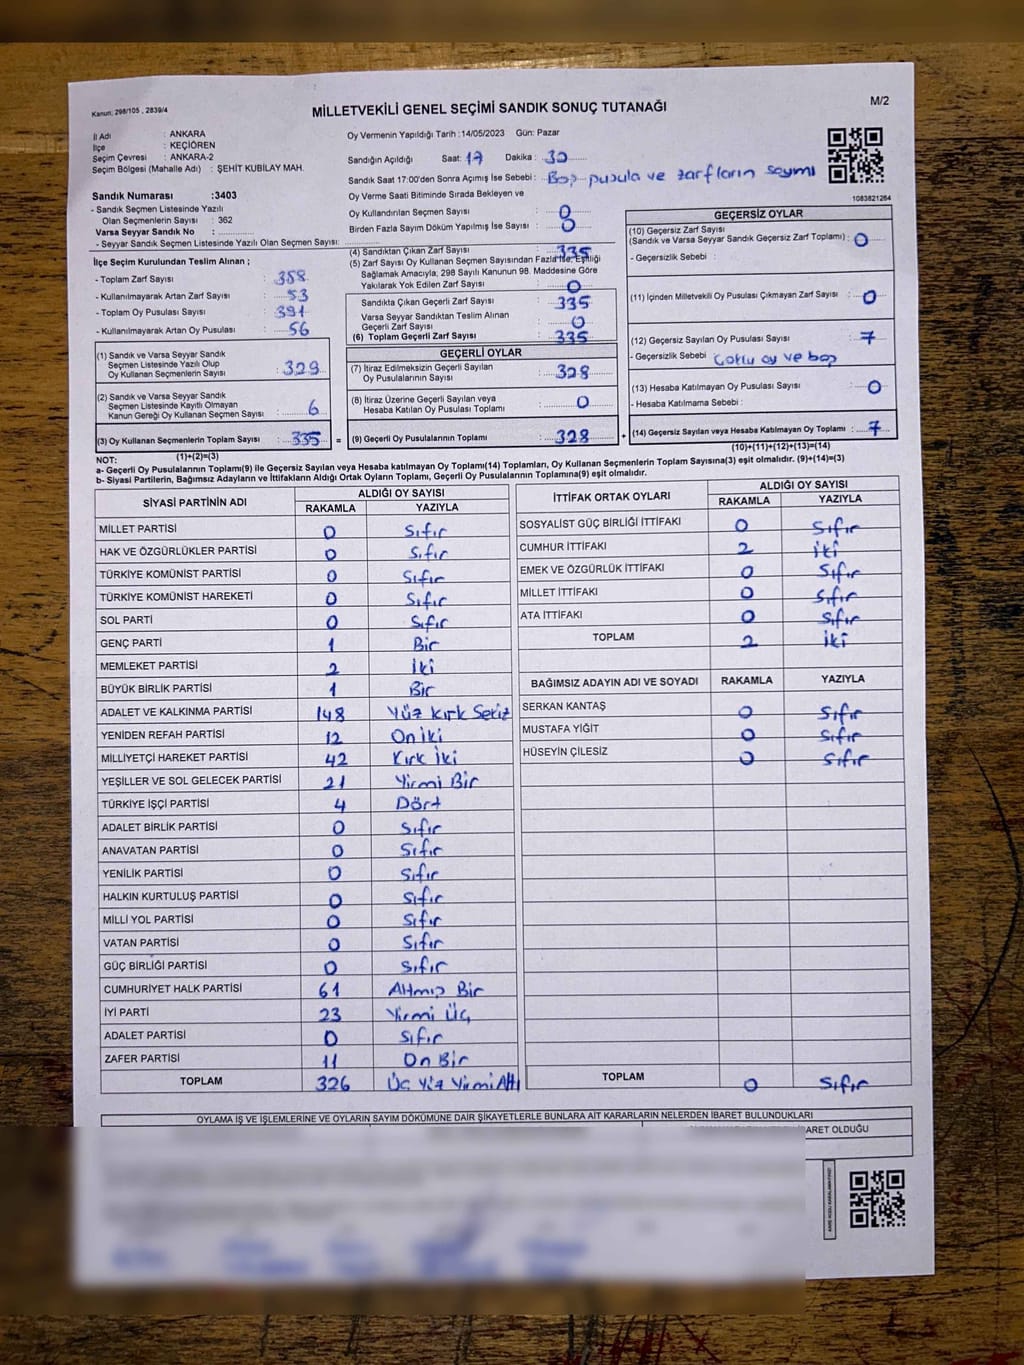 Kanun: 298/105 , 2839/4
MİLLETVEKİLİ GENEL SEÇİMİ SANDIK SONUÇ TUTANAĞI
M/2
İl Adı : ANKARA
İlçe : KEÇİÖREN
Seçim Çevresi : ANKARA-2
Seçim Bölgesi (Mahalle Adı) : ŞEHİT KUBİLAY MAH.
Oy Vermenin Yapıldığı Tarih :14/05/2023 Gün: Pazar
Sandığın Açıldığı Saat: 17 Dakika : 30
Sandık Saat 17:00'den Sonra Açımış İse Sebebi : Boş pusula ve zarfların sayımı
Oy Verme Saati Bitiminde Sırada Bekleyen ve
Oy Kullandırılan Seçmen Sayısı : 0
Birden Fazla Sayım Döküm Yapılmış İse Sayısı : 0
1083821264
Sandık Numarası :3403
- Sandık Seçmen Listesinde Yazılı
Olan Seçmenlerin Sayısı : 362
Varsa Seyyar Sandık No :
- Seyyar Sandık Seçmen Listesinde Yazılı Olan Seçmen Sayısı:
İlçe Seçim Kurulundan Teslim Alınan ;
- Toplam Zarf Sayısı : 388
- Kullanılmayarak Artan Zarf Sayısı : 53
- Toplam Oy Pusulası Sayısı : 391
- Kullanılmayarak Artan Oy Pusulası : 56
(1) Sandık ve Varsa Seyyar Sandık
Seçmen Listesinde Yazılı Olup
Oy Kullanan Seçmenlerin Sayısı : 329
(2) Sandık ve Varsa Seyyar Sandık
Seçmen Listesinde Kayıtlı Olmayan
Kanun Gereği Oy Kullanan Seçmen Sayısı : 6
(3) Oy Kullanan Seçmenlerin Toplam Sayısı : 335 =
(1)+(2)=(3)
(4) Sandıktan Çıkan Zarf Sayısı : 335
(5) Zarf Sayısı Oy Kullanan Seçmen Sayısından Fazla İse, Eşitliği
Sağlamak Amacıyla, 298 Sayılı Kanunun 98. Maddesine Göre
Yakılarak Yok Edilen Zarf Sayısı : 0
Sandıkta Çıkan Geçerli Zarf Sayısı : 335
Varsa Seyyar Sandıktan Teslim Alınan
Geçerli Zarf Sayısı : 0
(6) Toplam Geçerli Zarf Sayısı : 335
GEÇERLİ OYLAR
(7) İtiraz Edilmeksizin Geçerli Sayılan
Oy Pusulalarının Sayısı : 328
(8) İtiraz Üzerine Geçerli Sayılan veya
Hesaba Katılan Oy Pusulası Toplamı : 0
(9) Geçerli Oy Pusulalarının Toplamı : 328 +
GEÇERSİZ OYLAR
(10) Geçersiz Zarf Sayısı
(Sandık ve Varsa Seyyar Sandık Geçersiz Zarf Toplamı) : 0
- Geçersizlik Sebebi :
(11) İçinden Milletvekili Oy Pusulası Çıkmayan Zarf Sayısı : 0
(12) Geçersiz Sayılan Oy Pusulası Sayısı : 7
- Geçersizlik Sebebi Çoklu oy ve boş
(13) Hesaba Katılmayan Oy Pusulası Sayısı : 0
- Hesaba Katılmama Sebebi :
(14) Geçersiz Sayılan veya Hesaba Katılmayan Oy Toplamı : 7
(10)+(11)+(12)+(13)=(14)
NOT:
a- Geçerli Oy Pusulalarının Toplamı(9) ile Geçersiz Sayılan veya Hesaba katılmayan Oy Toplamı(14) Toplamları, Oy Kullanan Seçmenlerin Toplam Sayısına(3) eşit olmalıdır. (9)+(14)=(3)
b- Siyasi Partilerin, Bağımsız Adayların ve İttifakların Aldığı Ortak Oyların Toplamı, Geçerli Oy Pusulalarının Toplamına(9) eşit olmalıdır.
SİYASİ PARTİNİN ADI ALDIĞI OY SAYISI
RAKAMLA YAZIYLA
MİLLET PARTİSİ 0 Sıfır
HAK VE ÖZGÜRLÜKLER PARTİSİ 0 Sıfır
TÜRKİYE KOMÜNİST PARTİSİ 0 Sıfır
TÜRKİYE KOMÜNİST HAREKETİ 0 Sıfır
SOL PARTİ 0 Sıfır
GENÇ PARTİ 1 Bir
MEMLEKET PARTİSİ 2 İki
BÜYÜK BİRLİK PARTİSİ 1 Bir
ADALET VE KALKINMA PARTİSİ 148 Yüz Kırk Sekiz
YENİDEN REFAH PARTİSİ 12 On iki
MİLLİYETÇİ HAREKET PARTİSİ 42 Kırk İki
YEŞİLLER VE SOL GELECEK PARTİSİ 21 Yirmi Bir
TÜRKİYE İŞÇİ PARTİSİ 4 Dört
ADALET BİRLİK PARTİSİ 0 Sıfır
ANAVATAN PARTİSİ 0 Sıfır
YENİLİK PARTİSİ 0 Sıfır
HALKIN KURTULUŞ PARTİSİ 0 Sıfır
MİLLİ YOL PARTİSİ 0 Sıfır
VATAN PARTİSİ 0 Sıfır
GÜÇ BİRLİĞİ PARTİSİ 0 Sıfır
CUMHURİYET HALK PARTİSİ 61 Altmış Bir
İYİ PARTİ 23 Yirmi Üç
ADALET PARTİSİ 0 Sıfır
ZAFER PARTİSİ 11 On Bir
TOPLAM 326 Üç Yüz Yirmi Altı
İTTİFAK ORTAK OYLARI ALDIĞI OY SAYISI
RAKAMLA YAZIYLA
SOSYALİST GÜÇ BİRLİĞİ İTTİFAKI 0 Sıfır
CUMHUR İTTİFAKI 2 İki
EMEK VE ÖZGÜRLÜK İTTİFAKI 0 Sıfır
MİLLET İTTİFAKI 0 Sıfır
ATA İTTİFAKI 0 Sıfır
TOPLAM 2 İki
BAĞIMSIZ ADAYIN ADI VE SOYADI RAKAMLA YAZIYLA
SERKAN KANTAŞ 0 Sıfır
MUSTAFA YİĞİT 0 Sıfır
HÜSEYİN ÇİLESİZ 0 Sıfır
TOPLAM 0 Sıfır
OYLAMA İŞ VE İŞLEMLERİNE VE OYLARIN SAYIM DÖKÜMÜNE DAİR ŞİKAYETLERLE BUNLARA AİT KARARLARIN NELERDEN İBARET BULUNDUKLARI
ARET OLDUĞU